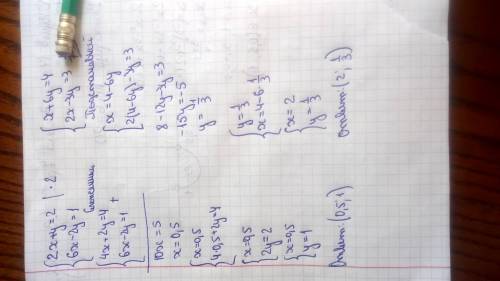 {2x+y=2 | ·2
{6x-2y=1
сложения
{4x+2y=4
{6x-2y=1 +
10x=5
x=0,5
{x=0,5
{4·0,5+2y=4
{x=0,5
{2y=2
{x=0,5
{y=1
Ответ: (0,5; 1)
{x+6y=4
{2x-3y=3
Подстановкой
{x=4-6y
{2(4-6y)-3y=3
8-12y-3y=3
-15y=-5
y=1/3
{y=1/3
{x=4-6·1/3
{x=2
{y=1/3
Ответ: (2; 1/3)